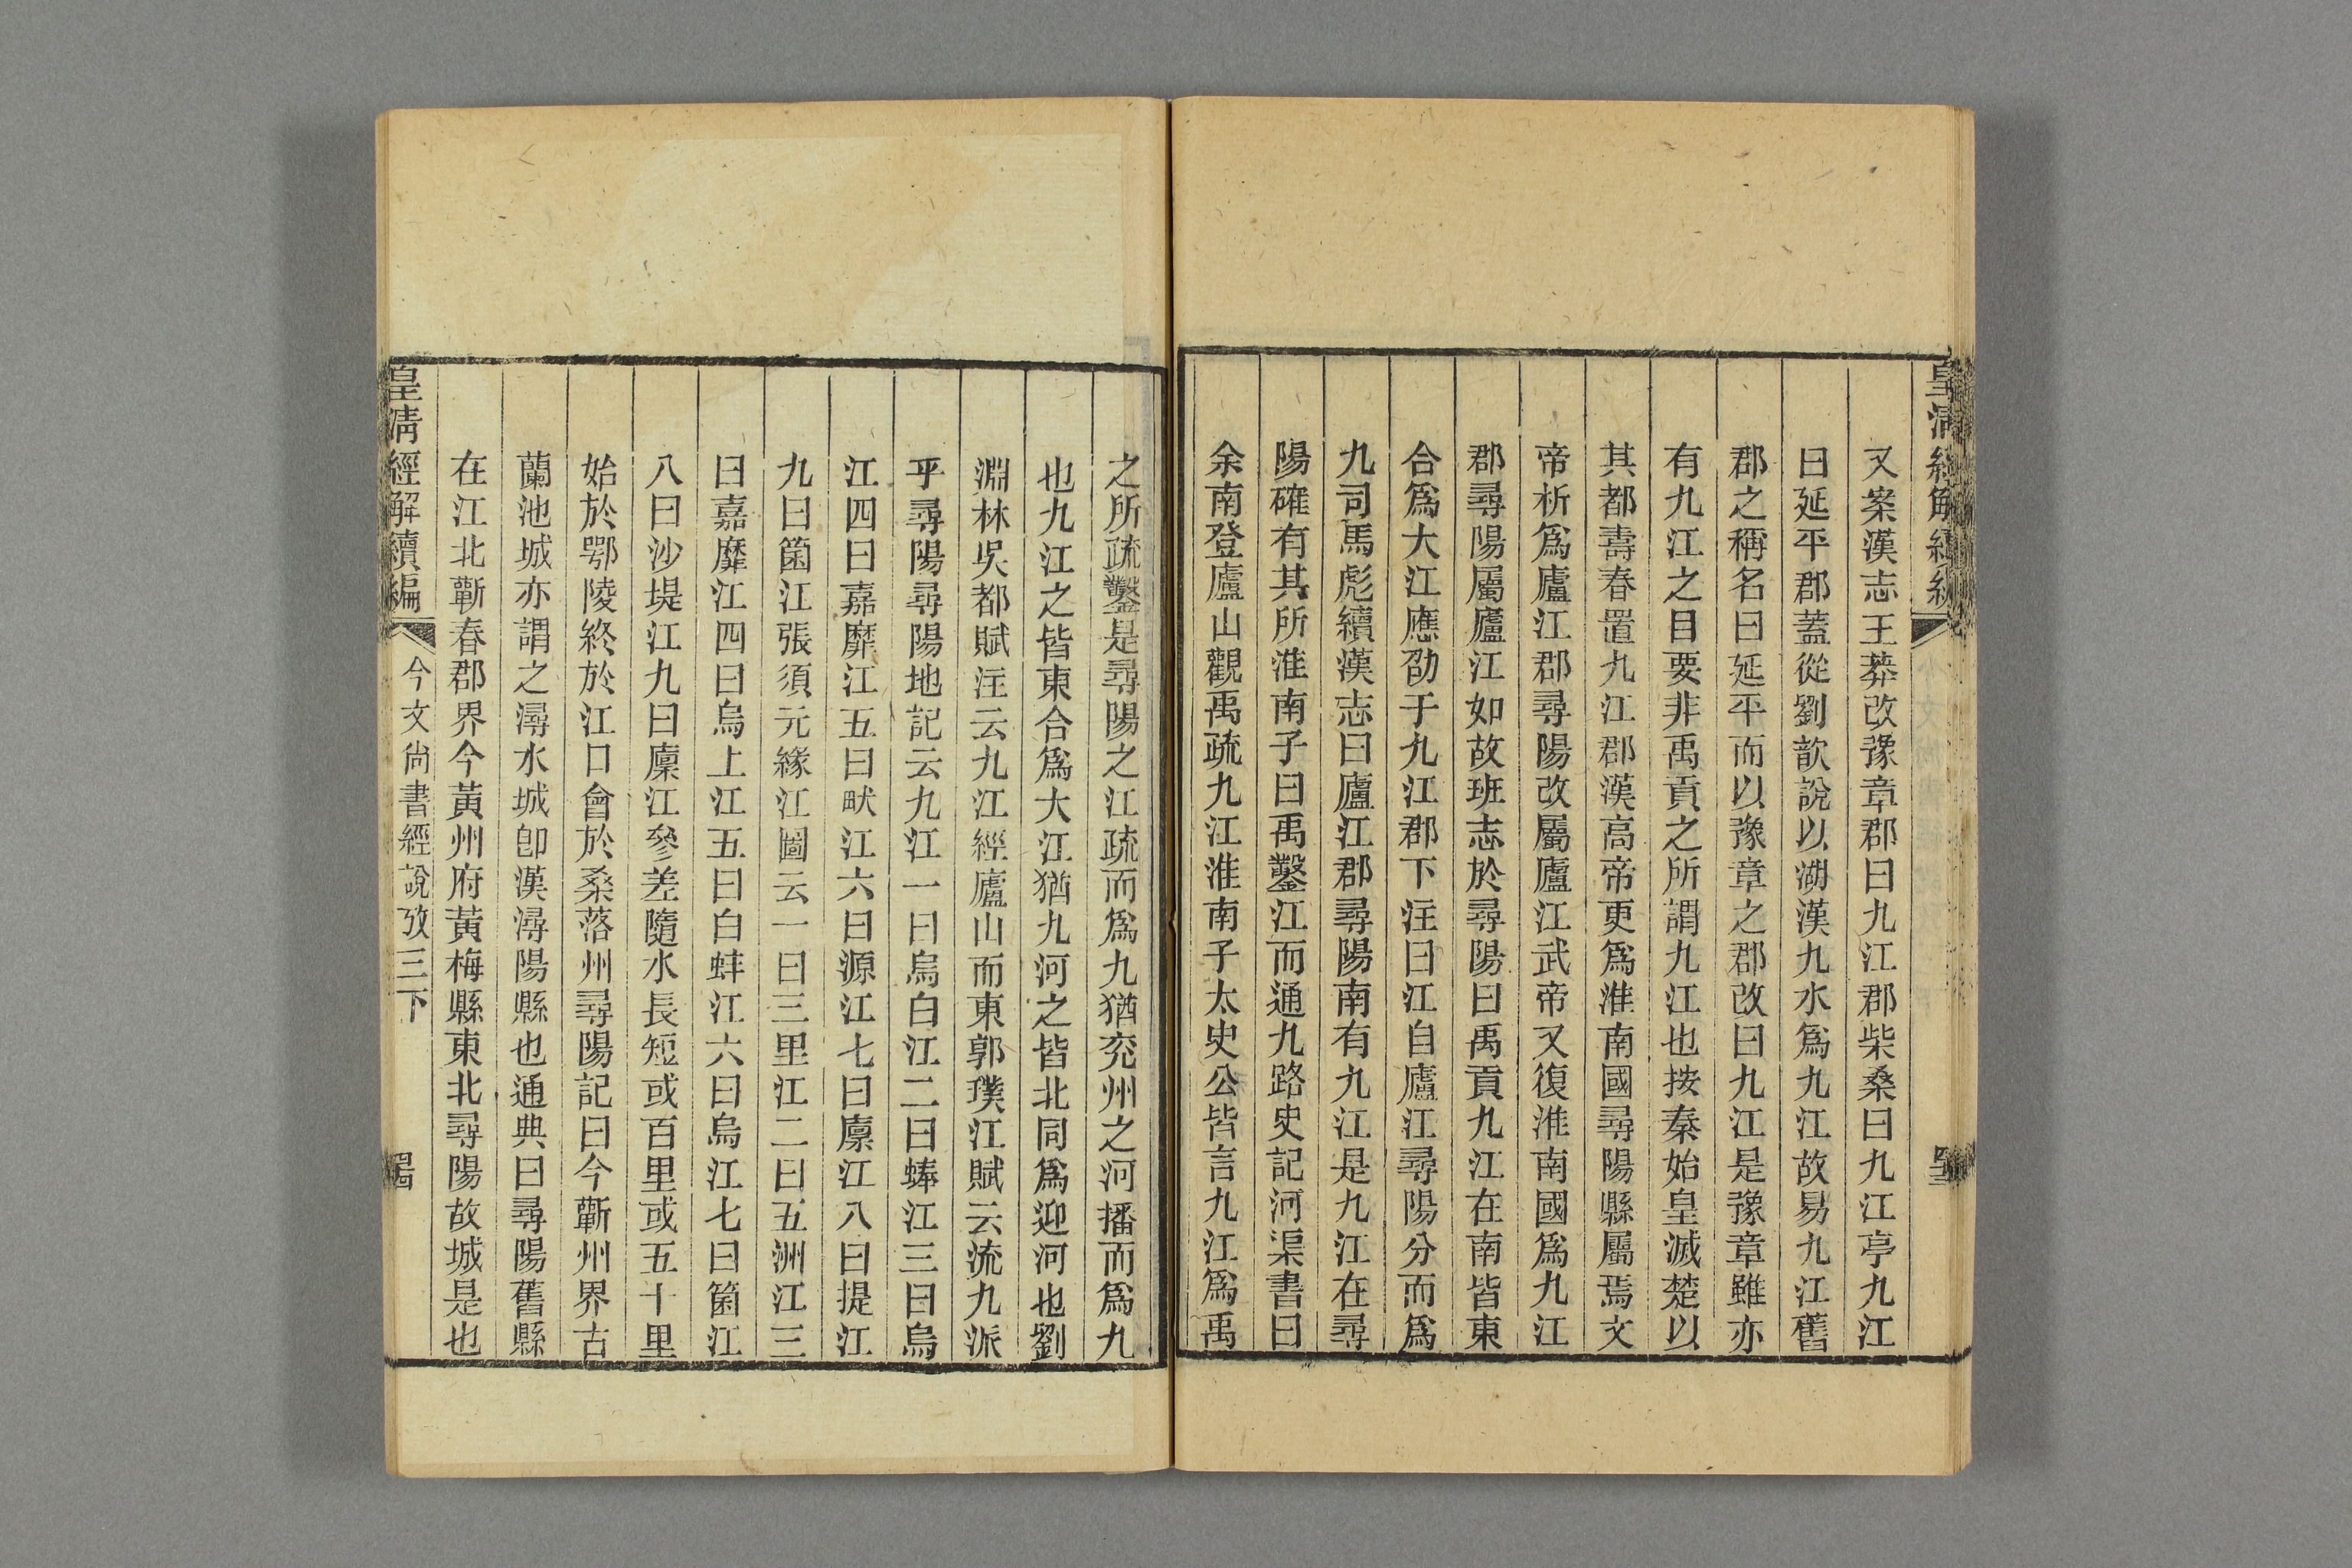 皇清經解續編
又案漢志王莽改豫章郡曰九江郡柴桑曰九江亭九江
曰延平郡蓋從劉歆說以湖漢九水爲九江故易九江舊
郡之稱名曰延平而以豫章之郡改曰九江是豫章雖亦
有九江之目要非禹貢之所謂九江也按秦始皇滅楚以
其都壽春置九江郡漢高帝更爲淮南國尋陽縣屬焉文
帝析爲廬江郡尋陽改屬廬江武帝又復淮南國爲九江
郡尋陽屬廬江如故班志於尋陽曰禹貢九江在南皆東
合爲大江應劭于九江郡下注曰江自廬江尋陽分而爲
九司馬彪續漢志曰廬江郡尋陽南有九江是九江在尋
陽確有其所淮南子曰禹鑿江而通九路史記河渠書曰
余南登廬山觀禹疏九江淮南子太史公皆言九江爲禹
之所疏鑿是尋陽之江疏而爲九猶兖州之河播而爲九
也九江之皆東合爲大江猶九河之皆北同爲迎河也劉
淵林吳都賦注云九江經廬山而東郭璞江賦云流九派
乎尋陽尋陽地記云九江一曰烏白江二曰蜯江三曰烏
江四曰嘉靡江五曰畎江六曰源江七曰廩江八曰提江
九曰箘江張須元緣江圖云一曰三里江二曰五洲江三
曰嘉靡江四曰烏上江五曰白蚌江六曰烏江七曰箘江
八曰沙堤江九曰廩江參差隨水長短或百里或五十里
始於鄂陵終於江口會於桑落州尋陽記曰今蘄州界古
蘭池城亦謂之潯水城卽漢潯陽縣也通典曰尋陽舊縣
在江北蘄春郡界今黃州府黃梅縣東北尋陽故城是也
皇清經解續編
今文尚書經說攷三下